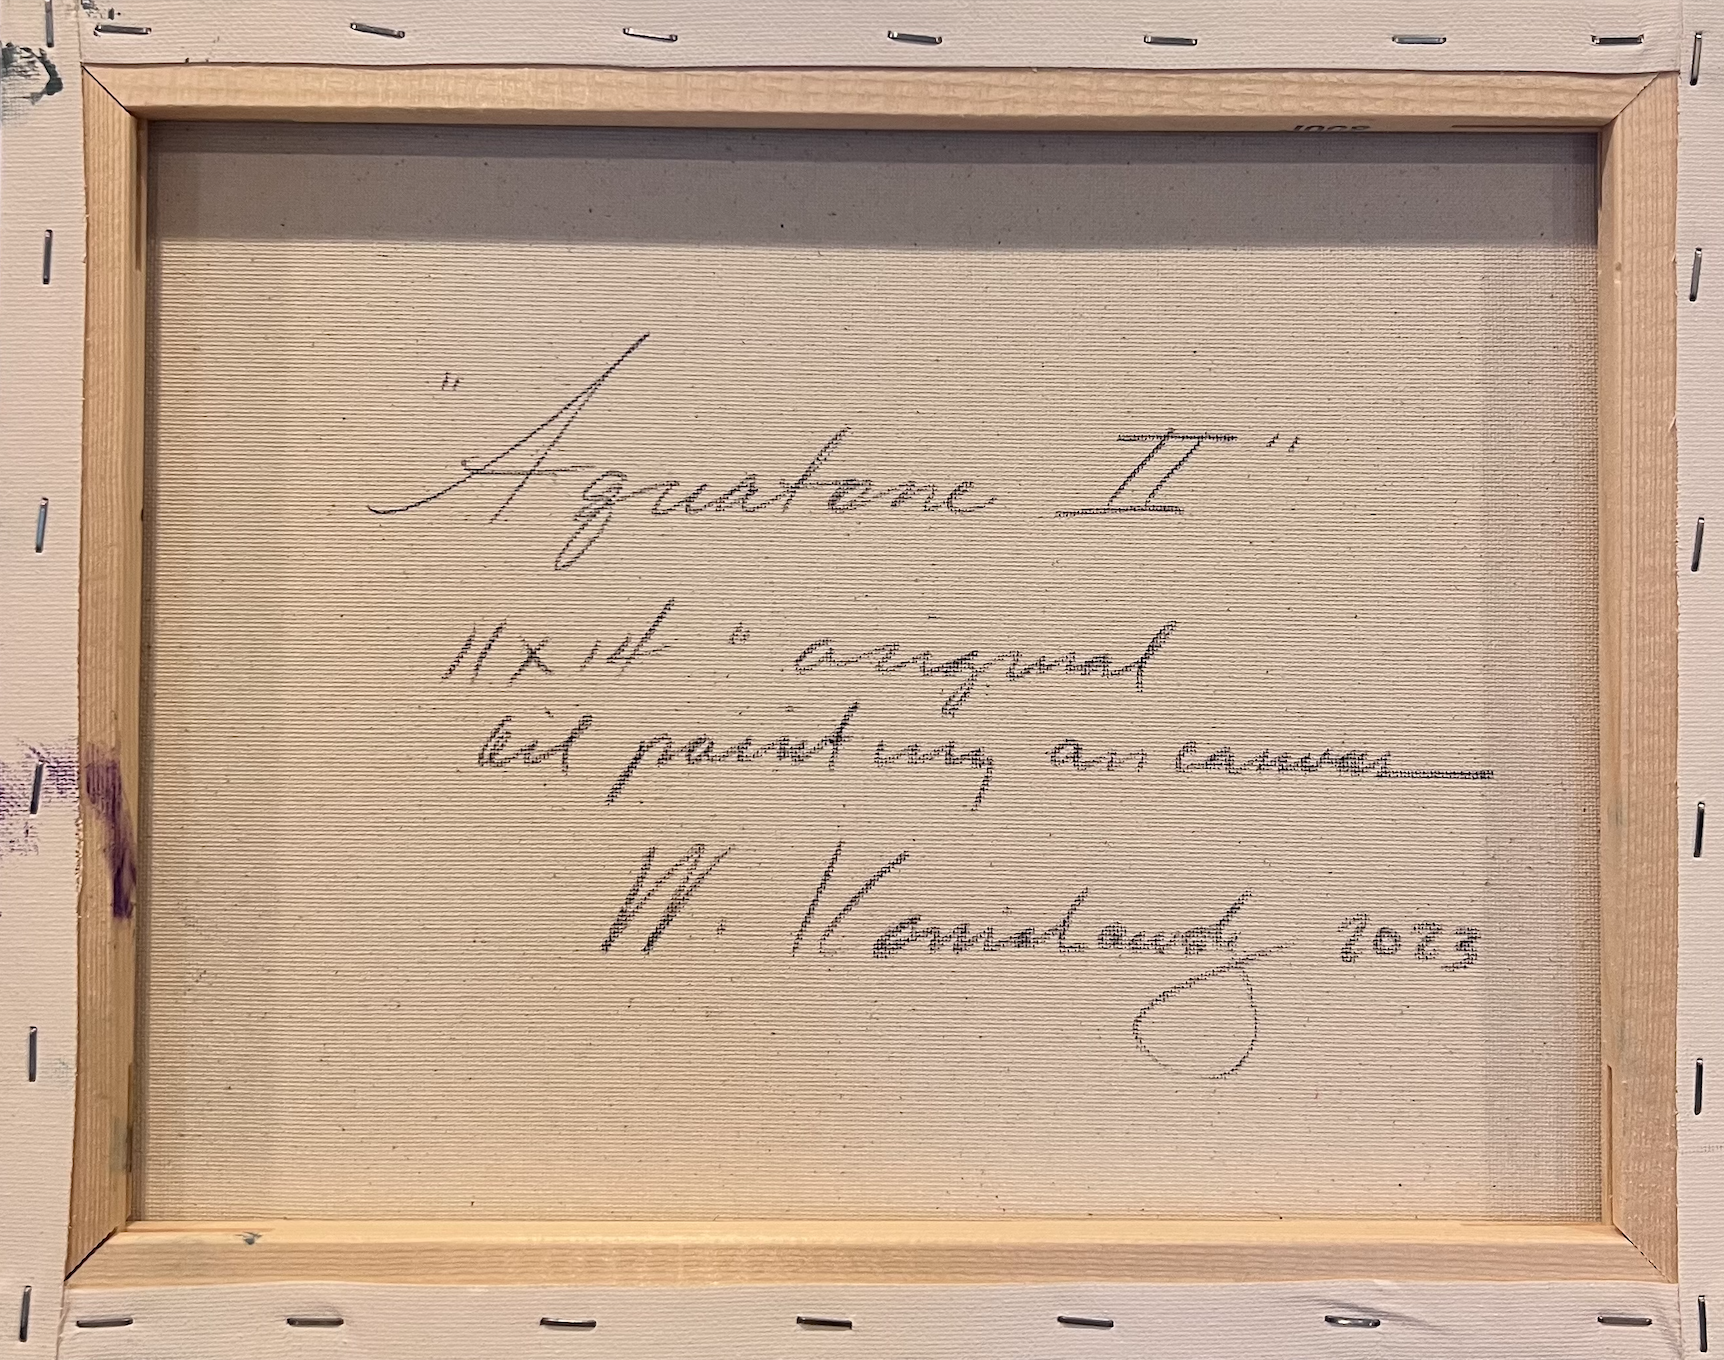 "Aquatone II"
11 x 14 " original
oil painting on canvas
W. 2023